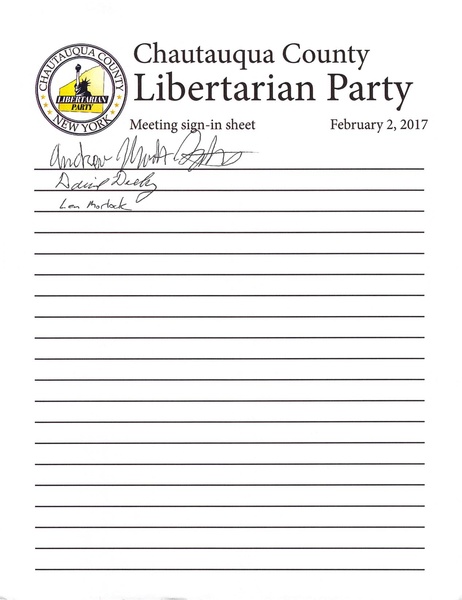 CHAUTAUQUA COUNTY
LIBERTARIAN
PARTY
NEW YORK
Chautauqua County
Libertarian Party
Meeting sign-in sheet February 2, 2017
Andrew
David
Len Morlock